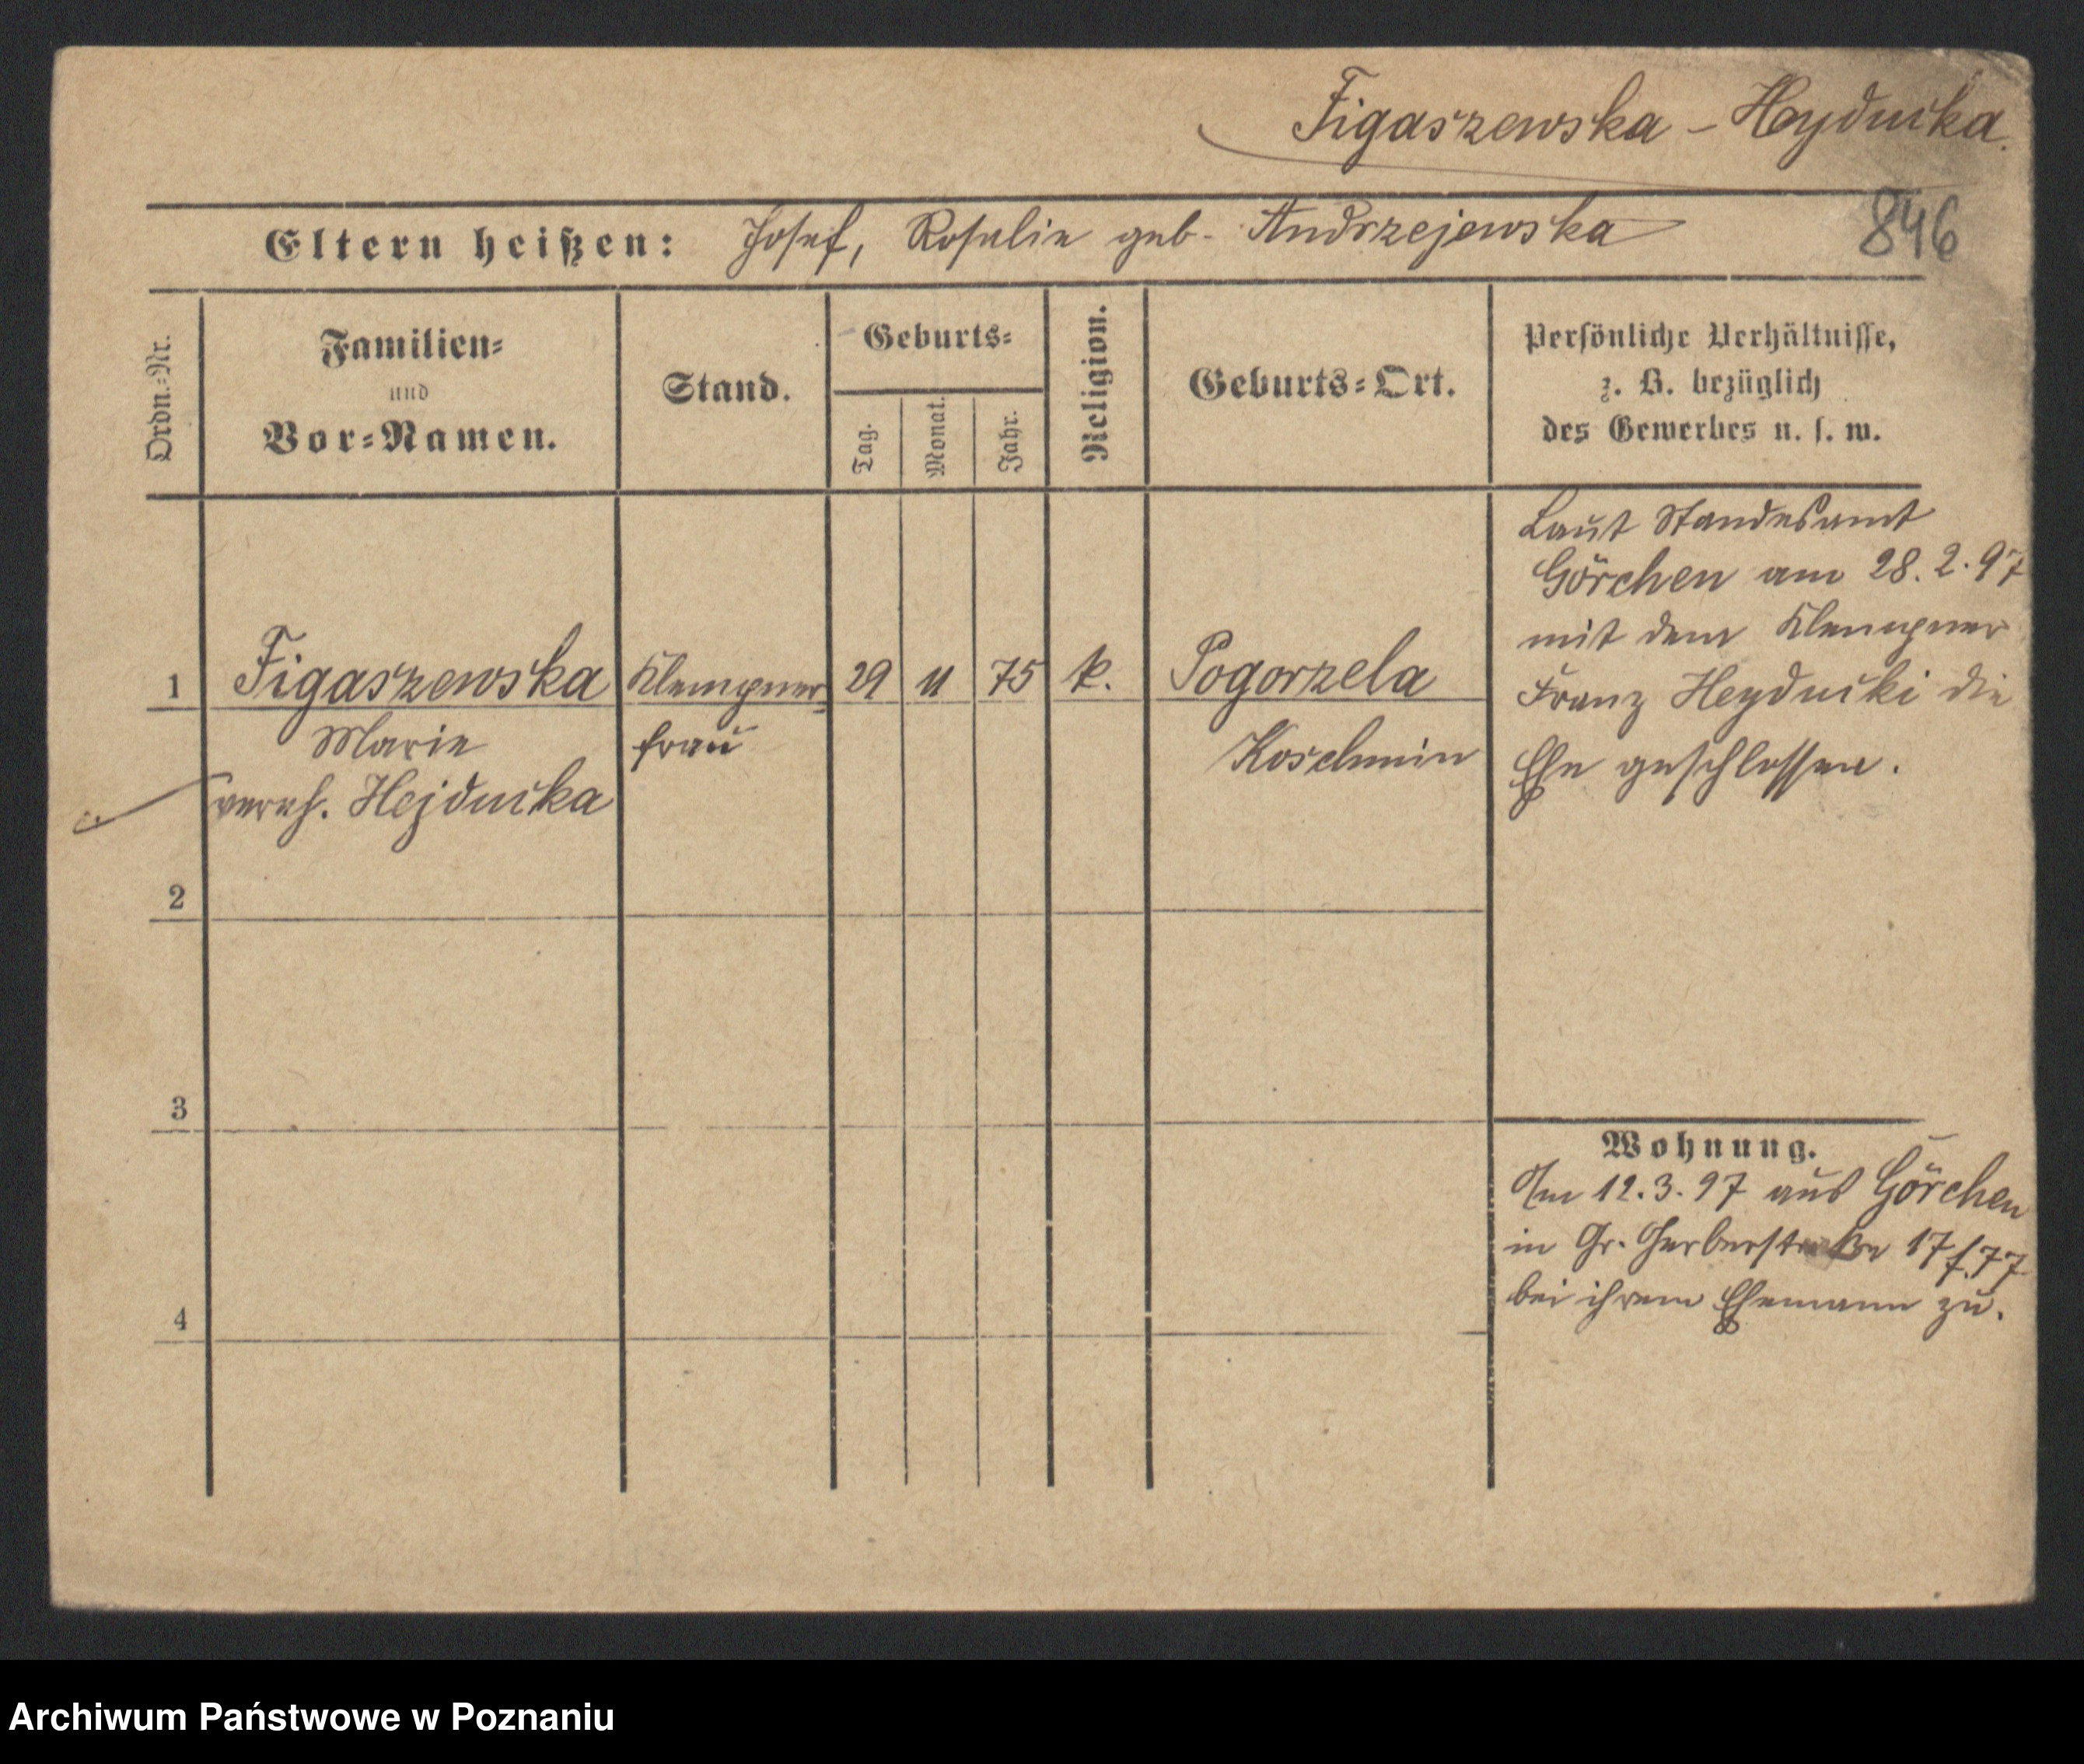 Figaszewska - Heyducka.
846
Eltern heißen: Josef, Rosalie geb. Andrzejewska
Ordn.=Nr.
Familien=
und
Vor=Namen.
Stand.
Geburts=
Tag.
Monat.
Jahr.
Religion.
Geburts=Ort.
Persönliche Verhältnisse,
z. B. bezüglich
des Gewerbes u. s. w.
1 Figaszewska Klempner= 29 11 75 k. Pogorzela
Marie frau Koschmin
vereh. Hejducka
Laut Standesamt
Görchen am 28.2.97
mit dem Klempner
Franz Heyducki die
Ehe geschlossen.
2
3
4
Wohnung.
Am 12.3.97 aus Görchen
in Gr. Gerberstraße 17 f. 77
bei ihrem Ehemann zu.
Archiwum Państwowe w Poznaniu